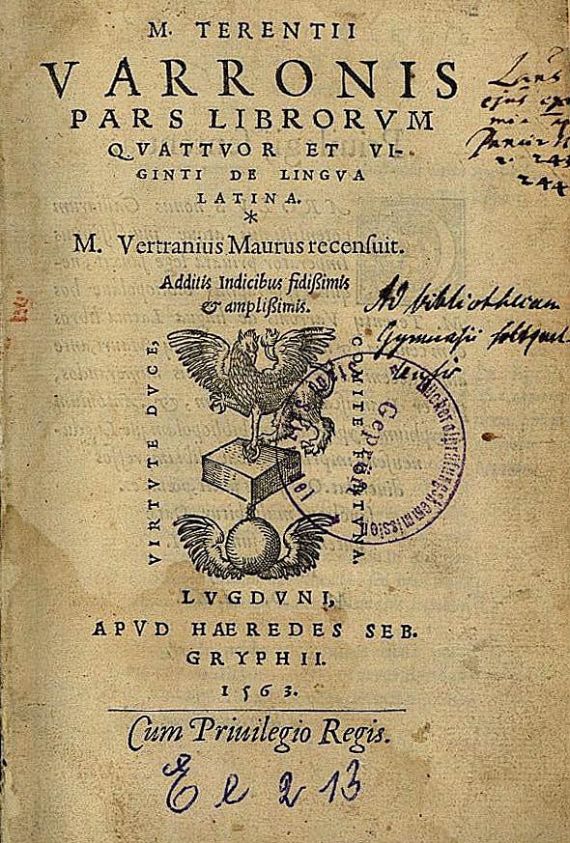 M. TERENTII
VARRONIS
PARS LIBRORVM
QVATTVOR ET VI-
GINTI DE LINGVA
LATINA.
*
M. Vertranius Maurus recensuit.
Additis Indicibus fidißimis
& amplißimis.
Ad bibliothecam
Gymnasii
VIRTVTE DVCE,
COMITE FORTVNA.
Geprüft
LVGDVNI,
APVD HAEREDES SEB.
GRYPHII.
1563.
Cum Priuilegio Regis.
E e 213